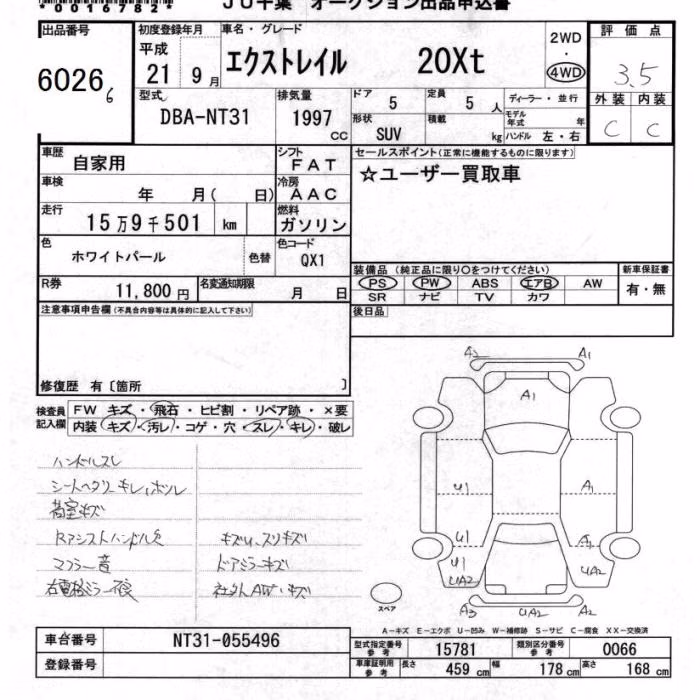 *0016782*
JU千葉 オークション出品申込書
出品番号
6026 6
初度登録年月
平成
21 9月
車名・グレード
エクストレイル 20Xt
2WD
・
4WD
評価点
3.5
外装 内装
C C
型式
DBA-NT31
排気量
1997 CC
ドア 5
定員 5人
ディーラー・並行
形状 SUV
積載 kg
モデル年式 年
ハンドル 左・右
車歴
自家用
シフト
FAT
セールスポイント(正常に機能するものに限ります)
☆ユーザー買取車
車検
年 月( 日)
冷房
AAC
走行
15万9千501 km
燃料
ガソリン
色
ホワイトパール
色替
色コード
QX1
装備品(純正品に限り○をつけてください)
新車保証書
PS PW ABS エアB AW
有・無
SR ナビ TV カワ
R券
11,800円
名変通知期限
月 日
後日品
注意事項申告欄(不具合内容等は具体的に記入して下さい)
修復歴 有〔箇所 〕
検査員記入欄
FW キズ・飛石・ヒビ割・リペア跡・×要
内装 キズ・汚レ・コゲ・穴・スレ・キレ・破レ
ハンドルスレ
シートヘタリ・キレ、
荷室キズ
Rアシストハンドル欠
キズU、スリキズ
マフラー音
ドアミラーキズ
右電格ミラー不良
社外AW・キズ
A2 A1
A1
U1 A1
U1 A1
U1 UA2
UA2
A3 UA2 A2
スペア
A-キズ E-エクボ U-凹み W-補修跡 S-サビ C-腐食 XX-交換済
車台番号
NT31-055496
登録番号
型式指定番号 参考
15781
類別区分番号 参考
0066
車庫証明用 参考
長さ 459 cm
幅 178 cm
高さ 168 cm